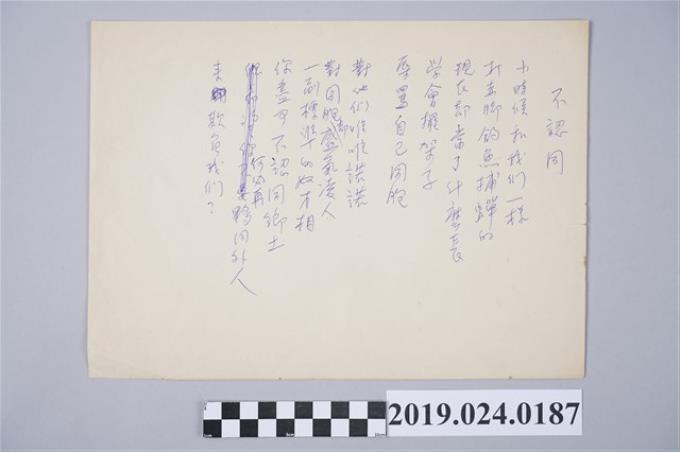 不認同
小時候和我們一樣
打赤腳釣魚捕蟬的
現在卻當了什麼長
學會擺架子
辱罵自己同胞
對他們唯唯諾諾
對同胞卻盛氣凌人
一副標準的奴才相
你盡可不認同鄉土
何必再幫同外人
來欺負我們？
2019.024.0187